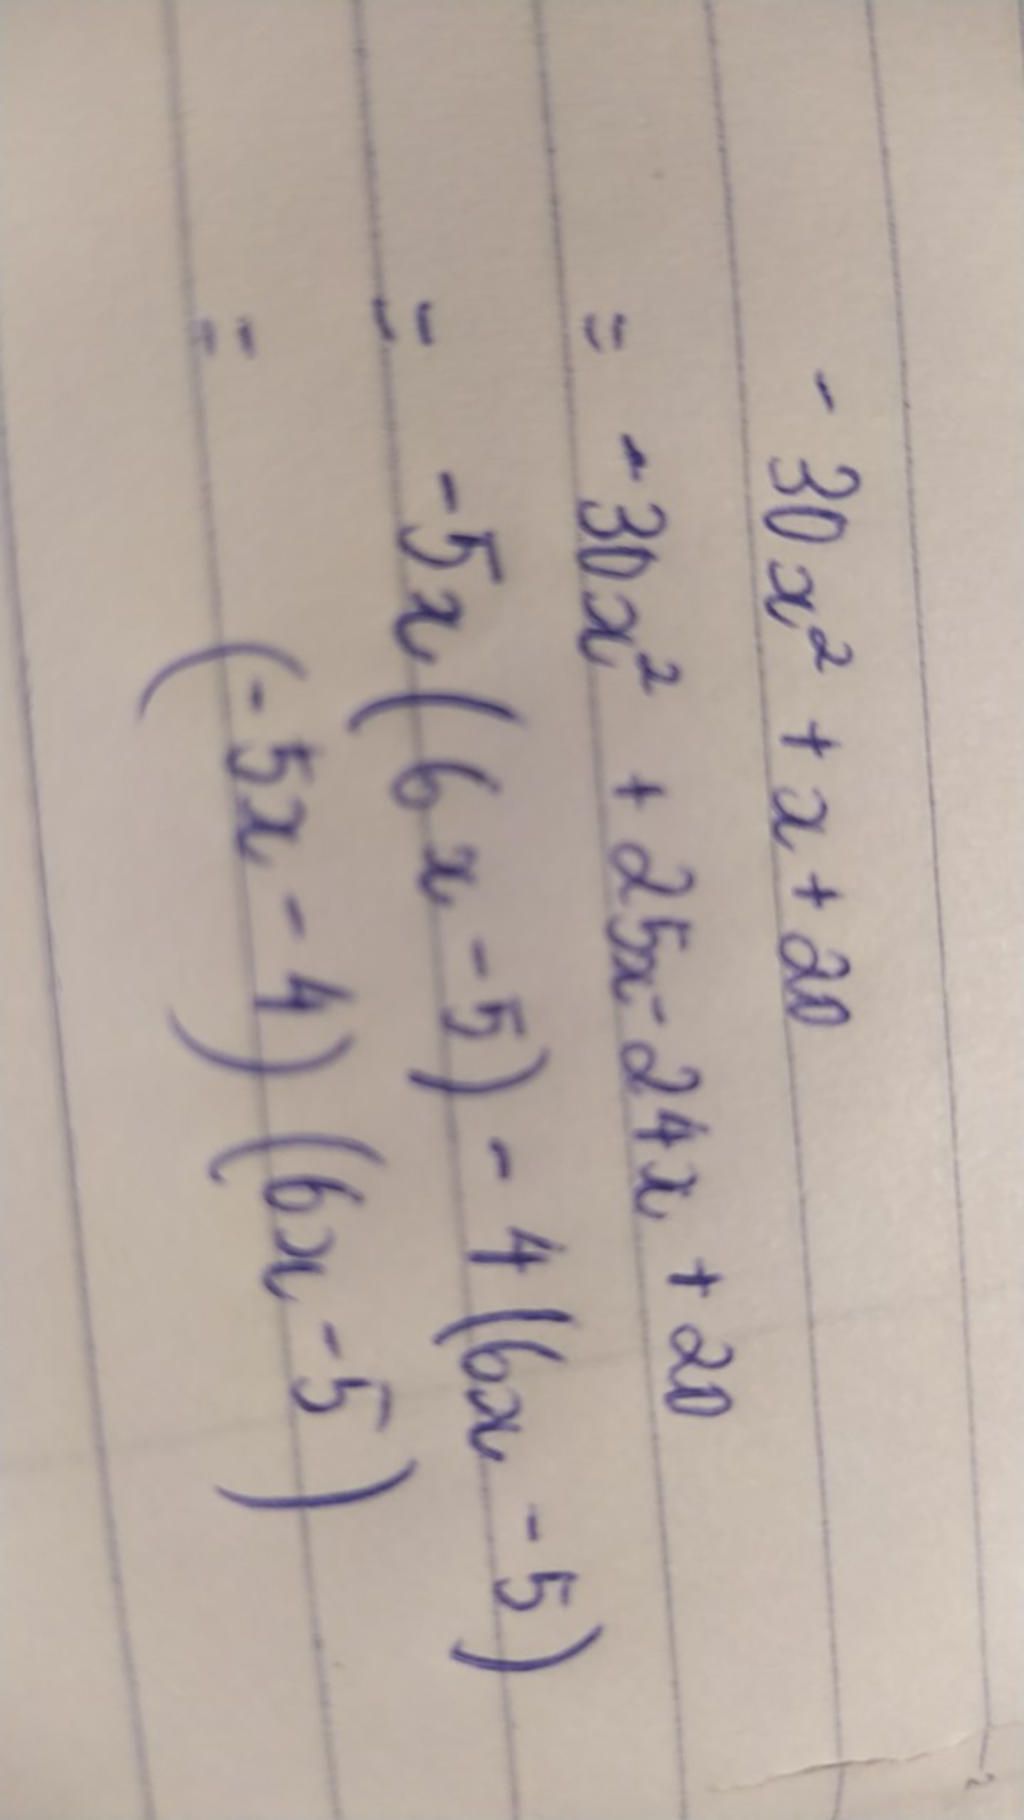 - 30x² + x + 20
= - 30x² + 25x - 24x + 20
= -5x (6x - 5) - 4 (6x - 5)
= (-5x - 4) (6x - 5)